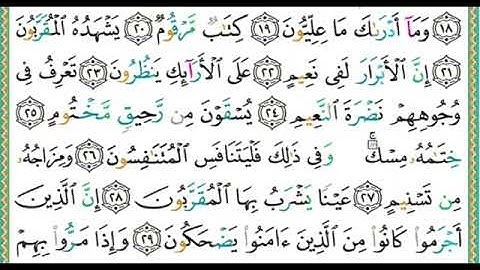 ﴿١٨﴾ وَمَآ أَدْرَىٰكَ مَا عِلِّيُّونَ ﴿١٩﴾ كِتَٰبٌ مَّرْقُومٌ ﴿٢٠﴾ يَشْهَدُهُ ٱلْمُقَرَّبُونَ
﴿٢١﴾ إِنَّ ٱلْأَبْرَارَ لَفِى نَعِيمٍ ﴿٢٢﴾ عَلَى ٱلْأَرَآئِكِ يَنظُرُونَ ﴿٢٣﴾ تَعْرِفُ فِى
وُجُوهِهِمْ نَضْرَةَ ٱلنَّعِيمِ ﴿٢٤﴾ يُسْقَوْنَ مِن رَّحِيقٍ مَّخْتُومٍ ﴿٢٥﴾
خِتَٰمُهُۥ مِسْكٌ ۚ وَفِى ذَٰلِكَ فَلْيَتَنَافَسِ ٱلْمُتَنَٰفِسُونَ ﴿٢٦﴾ وَمِزَاجُهُۥ
مِن تَسْنِيمٍ ﴿٢٧﴾ عَيْنًا يَشْرَبُ بِهَا ٱلْمُقَرَّبُونَ ﴿٢٨﴾ إِنَّ ٱلَّذِينَ
أَجْرَمُوا۟ كَانُوا۟ مِنَ ٱلَّذِينَ ءَامَنُوا۟ يَضْحَكُونَ ﴿٢٩﴾ وَإِذَا مَرُّوا۟ بِهِمْ